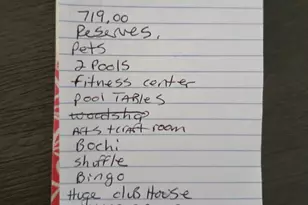 719.00
Reserves.
Pets
2 Pools
fitness center
pool TABles
woodshop
Arts + craft room
Bochi
shuffle
Bingo
Huge club House